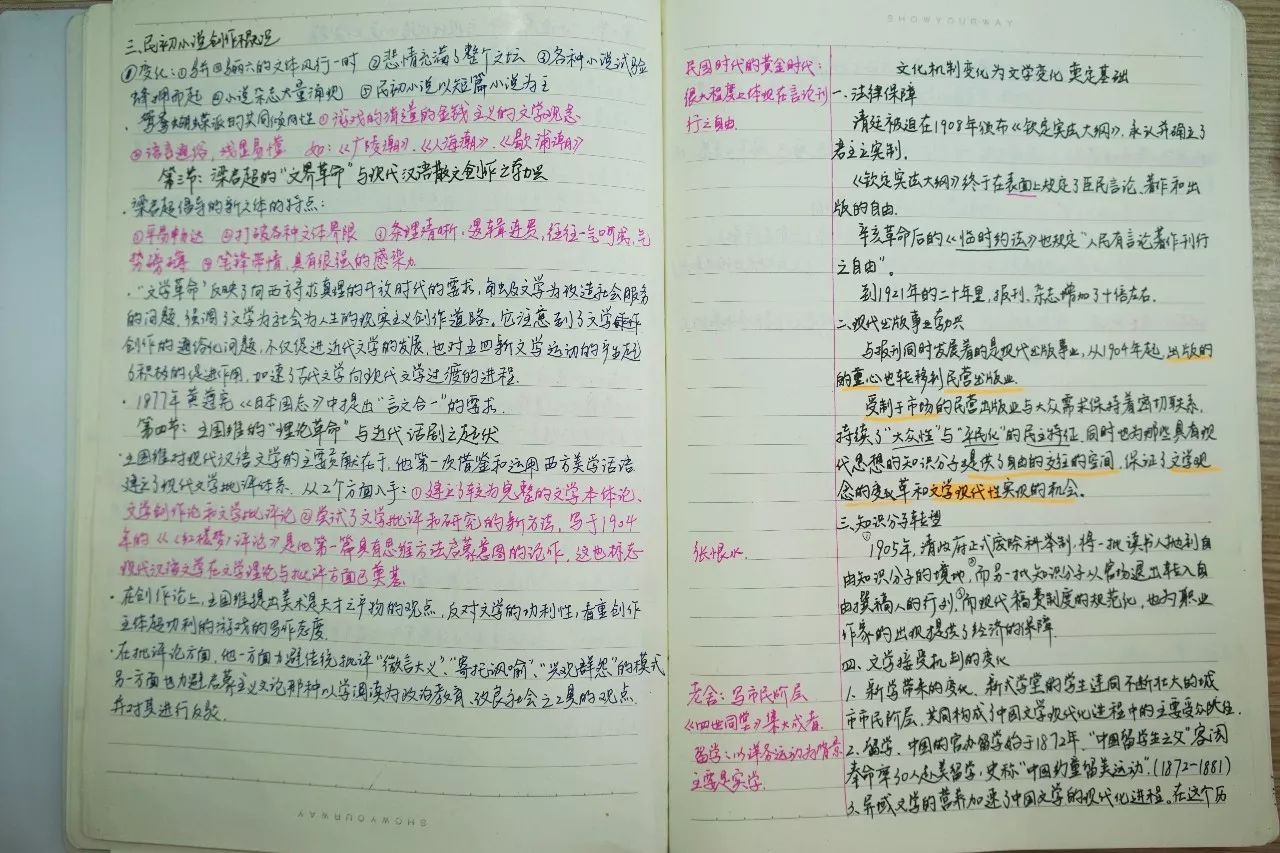 三、民初小说创作概况
①变化:①骈四俪六的文体风行一时 ②悲情充满了整个文坛 ③各种小说试验
蜂拥而起 ④小说杂志大量涌现 ⑤民初小说以短篇小说为主
·鸳鸯蝴蝶派的共同倾向性①游戏的消遣的金钱主义的文学观念
②语言通俗,浅显易懂 如:《广陵潮》、《人海潮》、《歇浦潮》
第三节:梁启超的“文界革命”与现代汉语散文创作之勃兴
·梁启超倡导的新文体的特点:
①平易畅达 ②打破各种文体界限 ③条理清晰,逻辑进展,往往一气呵成,气
势磅礴 ④笔锋带情,具有很强的感染力
·“文学革命”反映了向西方寻求真理的开放时代的要求,由以及文学为改造社会服务
的问题,强调了文学为社会为人生的现实主义创作道路。它注意到了文学
创作的通俗化问题,不仅促进近代文学的发展,也对五四新文学运动的产生起
了积极的促进作用,加速了古代文学向现代文学过渡的进程.
·1877年黄遵宪《日本国志》中提出“言文合一”的要求.
第四节:王国维的“理论革命”与近代话剧之起伏
·王国维对现代汉语文学的主要贡献在于,他第一次借鉴和运用西方美学话语
建立了现代文学批评体系.从2个方面入手:①建立了较为完整的文学本体论、
文学创作论和文学批评论 ②尝试了文学批评和研究的新方法,写于1904
年的《《红楼梦》评论》是他第一篇具有思维方法启蒙意图的论作,这也标志
现代汉语文学在文学理论与批评方面已奠基.
·在创作论上,王国维提出美术是天才之产物的观点,反对文学的功利性,看重创作
主体超功利的游戏的写作态度.
·在批评论方面,他一方面力避传统批评“微言大义”、“寄托讽喻”、“兴观群怨”的模式
另一方面也力避启蒙主义文论那种以学调读为政治教育、改良社会之工具的观点.
并对其进行反驳.
SHOWYOURWAY
SHOWYOURWAY
民国时代的黄金时代:
很大程度上体现在言论刊
行之自由.
张恨水.
老舍:写市民阶层
《四世同堂》集大成者.
留学:以洋务运动为背景
主要是实学.
文化机制变化为文学变化奠定基础
一、法律保障
清廷被迫在1908年颁布《钦定宪法大纲》,承认并确立了
君主立宪制.
《钦定宪法大纲》终于在表面上规定了臣民言论、著作和出
版的自由.
辛亥革命后的《临时约法》也规定“人民有言论著作刊行
之自由”。
到1921年的二十年里,报刊、杂志增加了十倍左右.
二、现代出版事业勃兴
与报刊同时发展着的是现代出版事业,从1904年起,出版的
的重心也转移到民营出版业
受制于市场的民营出版业与大众需求保持着密切联系.
持续了“大众性”与“平民化”的民主特征,同时也为那些具有现
代思想的知识分子提供了自由的交往的空间,保证了文学观
念的变革和文学现代性实现的机会。
三、知识分子转型
①1905年,清政府正式废除科举制,将一批读书人抛到自
由知识分子的境地,②而另一批知识分子从官场退出转入自
由撰稿人的行列,③而现代稿费制度的规范化,也为职业
作家的出现提供了经济的保障
四、文学接受机制的变化
1.新学带来的变化.新式学堂的学生连同不断壮大的城
市市民阶层,共同构成了中国文学现代化进程中的主要受众队伍.
2.留学.中国的官办留学始于1872年.“中国留学生之父”容闳
奉命率30人赴美留学,史称“中国幼童留美运动”.(1872-1881)
3.异域文学的营养加速了中国文学的现代化进程.在这个历